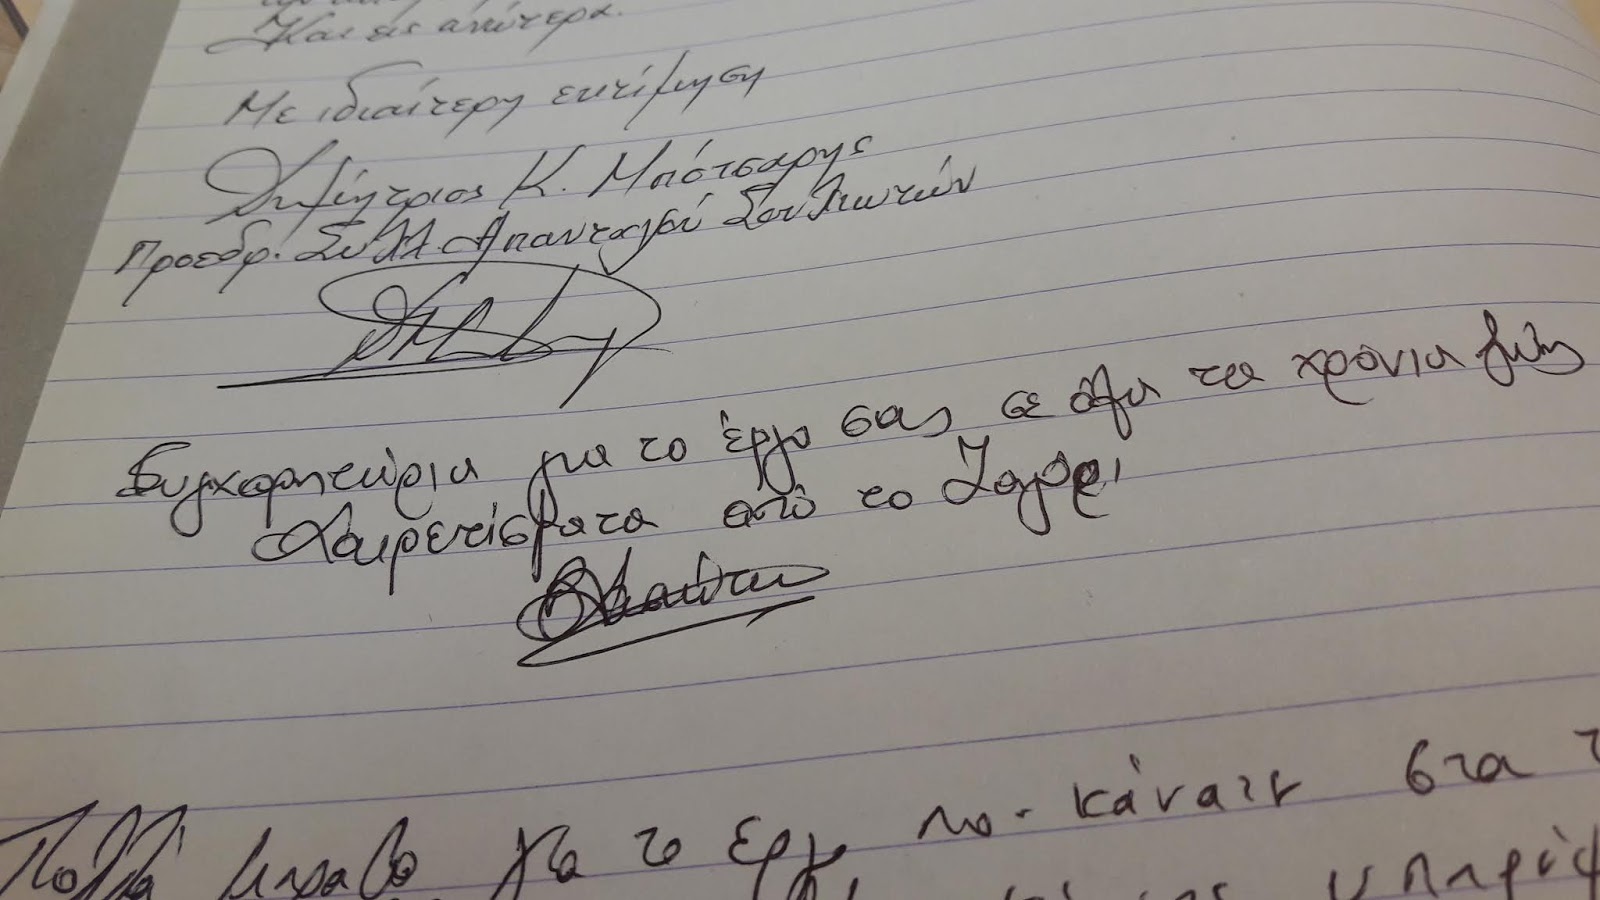 Και εις ανώτερα.
Με ιδιαίτερη εκτίμηση
Δημήτριος Κ. Μπότσαρης
Προεδρ. Συλλ. Απανταχού Σουλιωτών
Συγχαρητήρια για το έργο σας σε όλα τα χρόνια
Χαιρετίσματα από το Ζαγόρι
Πολλά μπράβο για το έργο που κάνατε στα